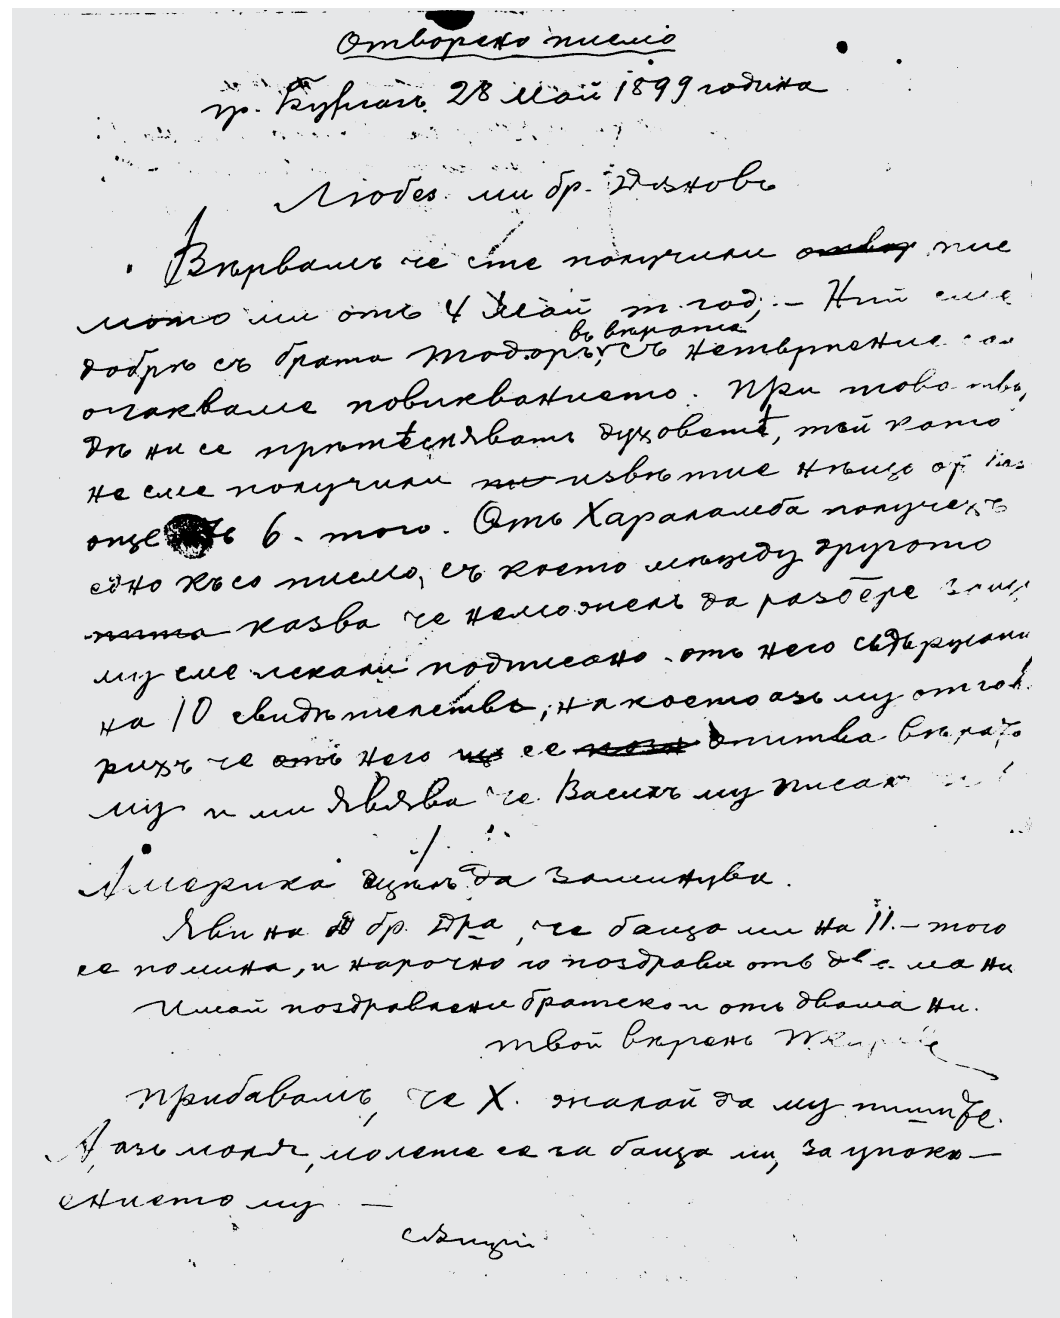 Отворено писмо
гр. Бургасъ, 28 Май 1899 година
Любез. ми бр. Дъновъ
Вѣрвамъ че сте получили отвор пис
мото ми отъ 4 Май т. год, – Ний сме
добрѣ съ брата Тодоръ, въ вѣрата съ нетърпение
очакваме повикванието. При това
дѣ ни се прѣтѣсняватъ духоветѣ, тъй като
не сме получили известие нѣщо от
още 6. того. Отъ Хараламба получихъ
едно късо писмо, съ което между другото
казва че неможелъ да разбере
му сме искали подписано отъ него съдържани
на 10 свидѣтелства, на което азъ му отгово
рихъ че отъ него се опитва вѣрата
му и ми явява че Василъ му писал
Америка щѣлъ да заминува.
Яви на бр. Дра, че баща ми на 11. – того
се помина, и нарочно го поздрави отъ двама ни
Имай поздравлени братско и отъ двама ни.
твой вѣренъ
Прибавамъ, че Х. желай да му пишете.
А, азъ моля, молете се за баща ми, за упоко–
ението му –
сѫщий